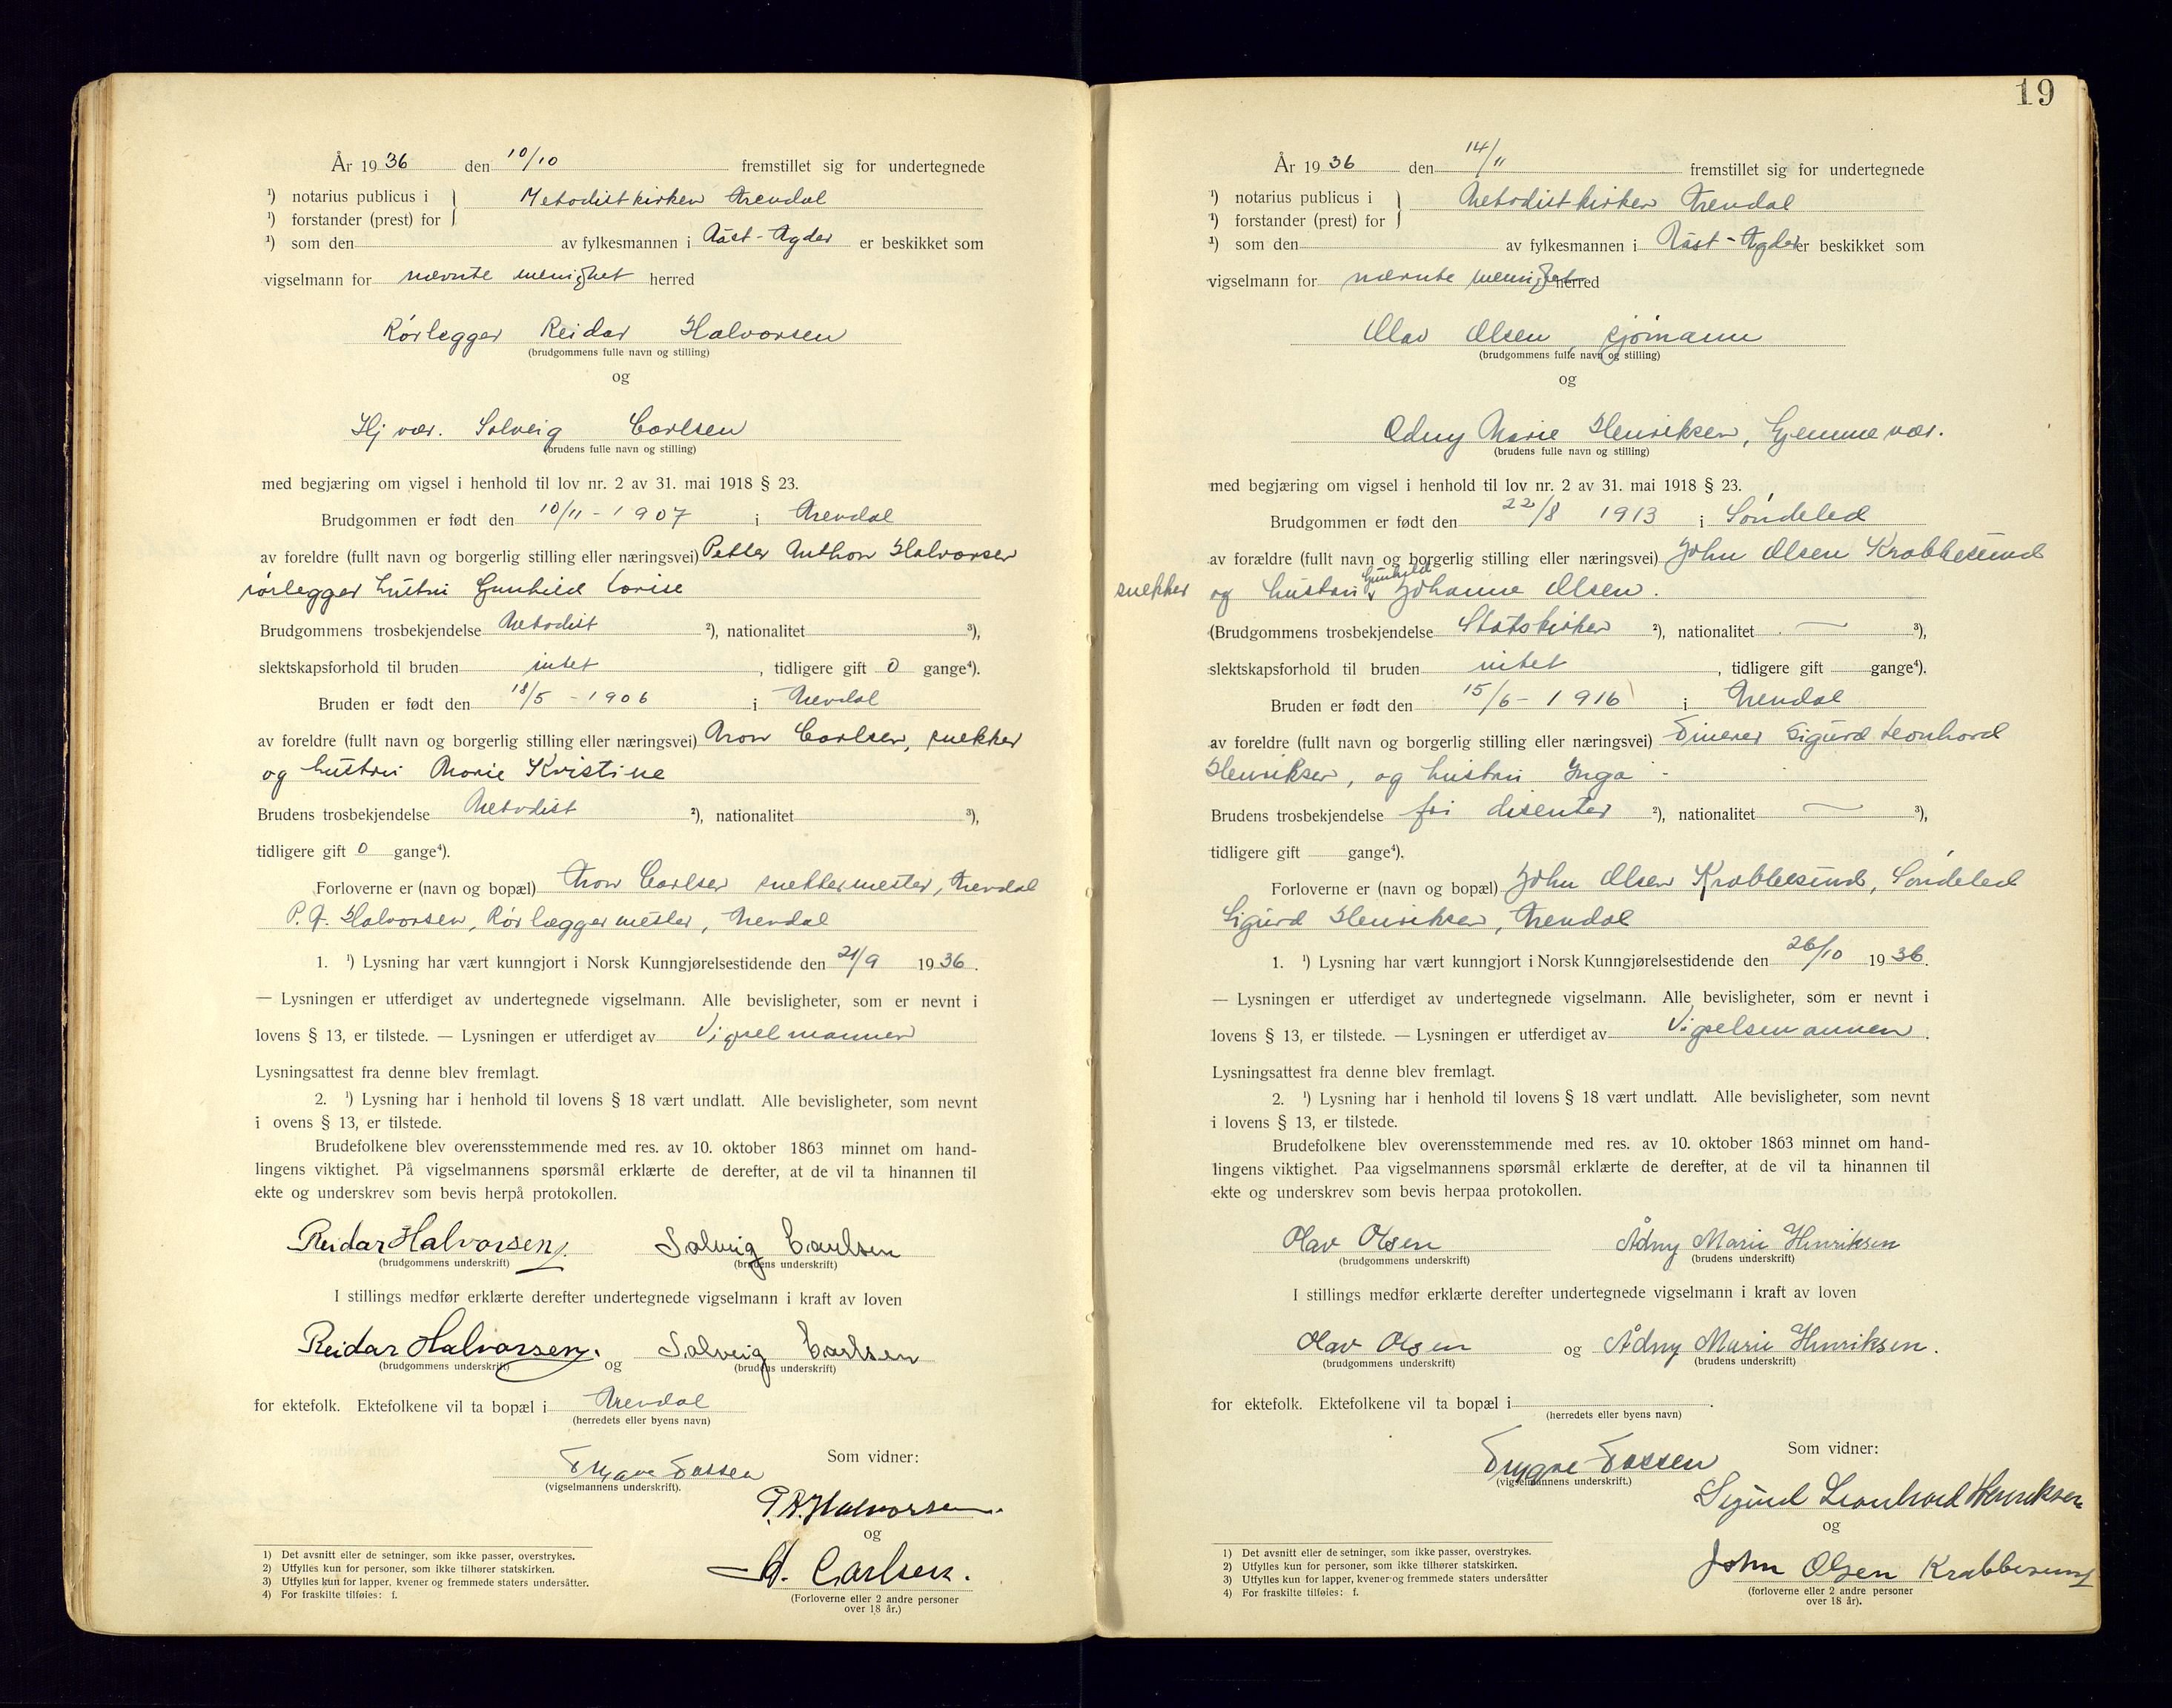 År 1936 den 10/10 fremstillet sig for undertegnede
¹) notarius publicus i } Metodistkirken Arendal
¹) forstander (prest) for
¹) som den av fylkesmannen i Aust-Agder er beskikket som
vigselmann for nævnte menighet herred
Rørlegger Reidar Halvorsen
(brudgommens fulle navn og stilling)
og
Hj vær. Solveig Carlsen
(brudens fulle navn og stilling)
med begjæring om vigsel i henhold til lov nr. 2 av 31. mai 1918 § 23.
Brudgommen er født den 10/11 - 1907 i Arendal
av foreldre (fullt navn og borgerlig stilling eller næringsvei) Petter Anthon Halvorsen
rørlegger hustru Gunhild Lovise
Brudgommens trosbekjendelse Metodist ²), nationalitet ³),
slektskapsforhold til bruden intet, tidligere gift 0 gange⁴).
Bruden er født den 18/5 - 1906 i Arendal
av foreldre (fullt navn og borgerlig stilling eller næringsvei) Aron Carlsen, snekker
og hustru Marie Kristine
Brudens trosbekjendelse Metodist ²), nationalitet ³),
tidligere gift 0 gange⁴).
Forloverne er (navn og bopæl) Aron Carlsen snekkermester, Arendal
P. A. Halvorsen, Rørlæggermester, Arendal
1. ¹) Lysning har vært kunngjort i Norsk Kunngjørelsestidende den 21/9 1936.
— Lysningen er utferdiget av undertegnede vigselmann. Alle bevisligheter, som er nevnt i
lovens § 13, er tilstede. — Lysningen er utferdiget av Vigselmannen
Lysningsattest fra denne blev fremlagt.
2. ¹) Lysning har i henhold til lovens § 18 vært undlatt. Alle bevisligheter, som nevnt
i ovens § 13, er tilstede.
Brudefolkene blev overensstemmende med res. av 10. oktober 1863 minnet om hand-
lingens viktighet. På vigselmannens spørsmål erklærte de derefter, at de vil ta hinannen til
ekte og underskrev som bevis herpå protokollen.
Reidar Halvorsen. Solveig Carlsen
(brudgommens underskrift) (brudens underskrift)
I stillings medfør erklærte derefter undertegnede vigselmann i kraft av loven
Reidar Halvorsen. og Solveig Carlsen
(brudgommens underskrift) (brudens underskrift)
for ektefolk. Ektefolkene vil ta bopæl i Arendal
(herredets eller byens navn)
Som vidner:
Trygve Tassen
(vigselmannens underskrift).
P.A. Halvorsen.
og
A. Carlsen.
(Forloverne eller 2 andre personer
over 18 år.)
1) Det avsnitt eller de setninger, som ikke passer, overstrykes.
2) Utfylles kun for personer, som ikke tilhører statskirken.
3) Utfylles kun for lapper, kvener og fremmede staters undersåtter.
4) For fraskilte tilføies: f.
19
År 1936 den 14/11 fremstillet sig for undertegnede
¹) notarius publicus i } Metodistkirken Arendal
¹) forstander (prest) for
¹) som den av fylkesmannen i Aust-Agder er beskikket som
vigselmann for nævnte menighet herred
Olav Olsen, sjømann
(brudgommens fulle navn og stilling)
og
Odny Marie Henriksen, hjemmevær.
(brudens fulle navn og stilling)
med begjæring om vigsel i henhold til lov nr. 2 av 31. mai 1918 § 23.
Brudgommen er født den 22/8 1913 i Søndeled
av forældre (fullt navn og borgerlig stilling eller næringsvei) John Olsen Krabbesund
snekker og hustru Gunhild Johanne Olsen.
(Brudgommens trosbekjendelse Statskirken ²), nationalitet — ³),
slektskapsforhold til bruden intet, tidligere gift gange⁴).
Bruden er født den 15/6 - 1916 i Arendal
av foreldre (fullt navn og borgerlig stilling eller næringsvei) Sigurd Leonhard
Henriksen, og hustru Inga -
Brudens trosbekjendelse fri disenter ²), nationalitet — ³),
tidligere gift gange⁴).
Forloverne er (navn og bopæl) John Olsen Krabbesund, Søndeled
Sigurd Henriksen, Arendal
1. ¹) Lysning har vært kunngjort i Norsk Kunngjørelsestidende den 26/10 1936.
— Lysningen er utferdiget av undertegnede vigselmann. Alle bevisligheter, som er nevnt i
lovens § 13, er tilstede. — Lysningen er utferdiget av Vigselsmannen.
Lysningsattest fra denne blev fremlagt.
2. ¹) Lysning har i henhold til lovens § 18 vært undlatt. Alle bevisligheter, som nevnt
i lovens § 13, er tilstede.
Brudefolkene blev overensstemmende med res. av 10. oktober 1863 minnet om hand-
lingens viktighet. Paa vigselmannens spørsmål erklærte de derefter, at de vil ta hinannen til
ekte og underskrev som bevis herpaa protokollen.
Olav Olsen Ådny Marie Henriksen
(brudgommens underskrift) (brudens underskrift)
I stillings medfør erklærte derefter undertegnede vigselmann i kraft av loven
Olav Olsen og Ådny Marie Henriksen.
(brudgommens underskrift) (brudens underskrift)
for ektefolk. Ektefolkene vil ta bopæl i .
(herredets eller byens navn)
Som vidner:
Trygve Tassen
(vigselmannens underskrift.)
Sigurd Leonhard Henriksen
og
John Olsen Krabbesund
(forloverne eller 2 andre personer
over 18 år).
1) Det avsnitt eller de setninger, som ikke passer, overstrykes.
2) Utfylles kun for personer, som ikke tilhører statskirken.
3) Utfylles kun for lapper, kvener og fremmede staters undersåtter
4) For fraskilte tilføies: f.